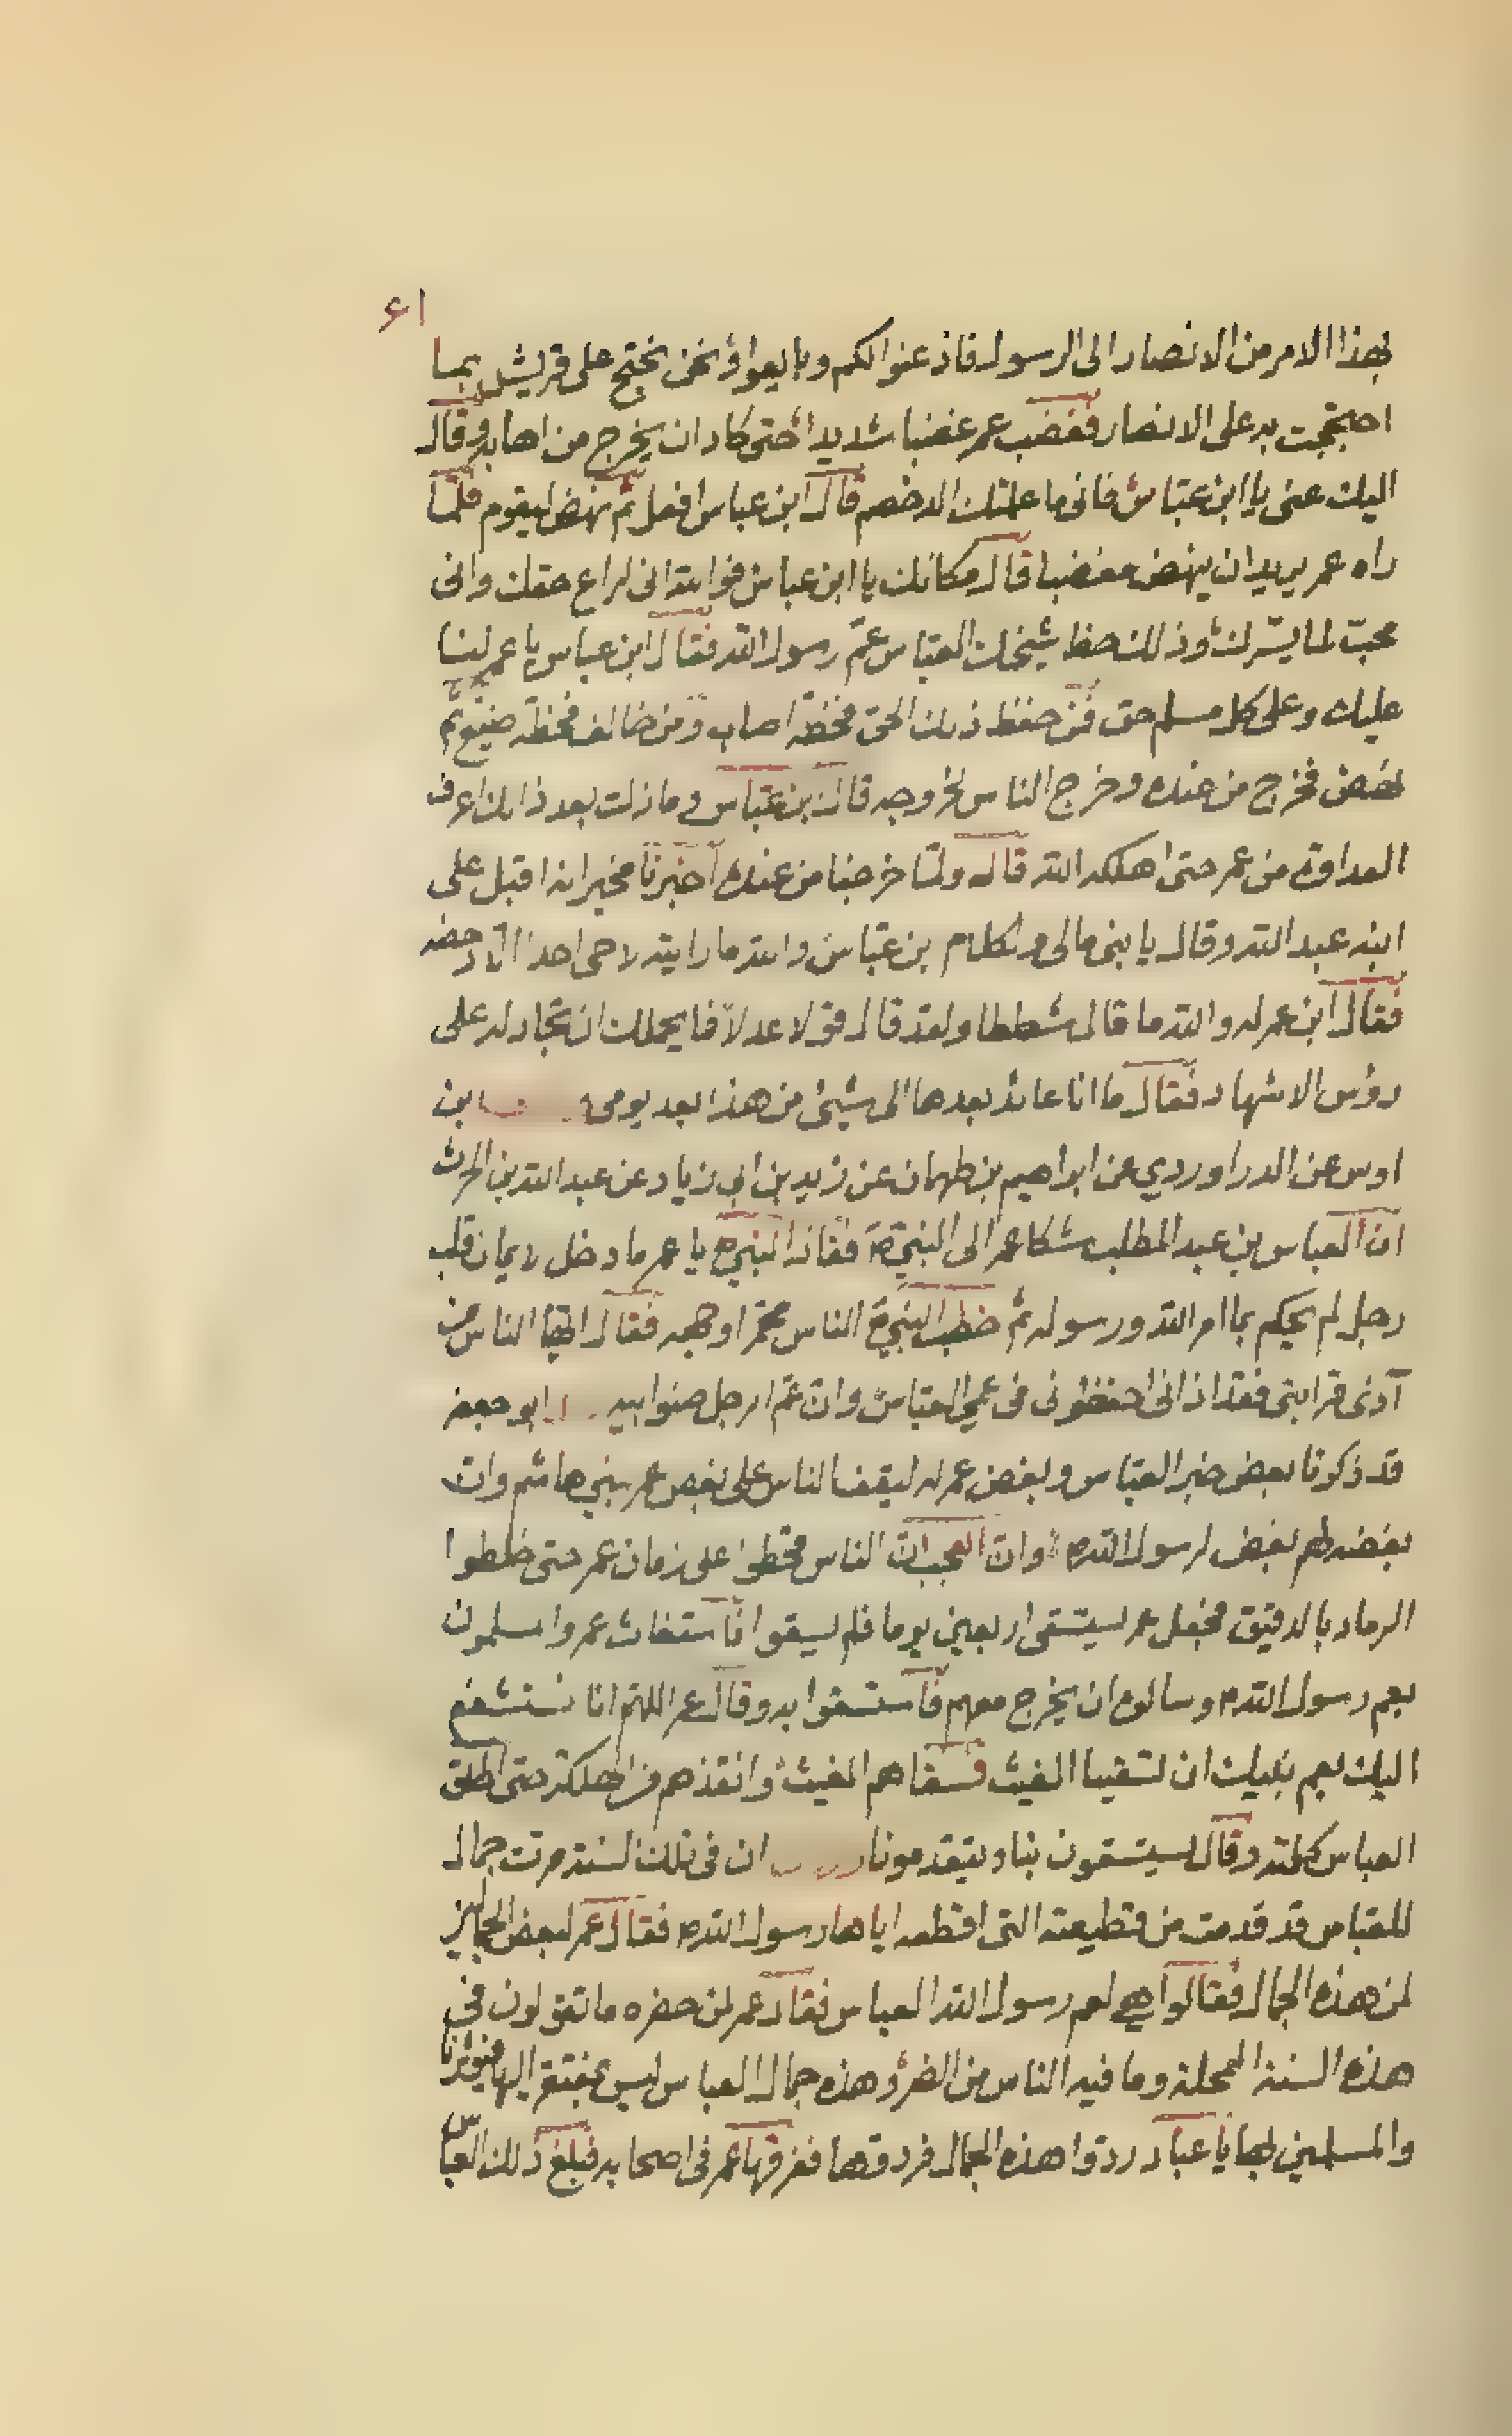 ۶۱
بهذا الامر من الانصار الى الرسول فاذعنوا لكم وبايعوا ونحن نحتج على قريش بما
احتججت به على الانصار فغضب عمر غضبا شديدا حتى كاد ان يخرج من اهابه وقال
اليك عنى يا ابن عباس فانى ما علمتك الد خصم قال ابن عباس افعل ثم نهض ليقوم فلما
راه عمر يريد ان ينهض مغضبا قال مكانك يا ابن عباس فوالله انى لراع حقك وانى
محب لما يسرك وذلك حفظ شيخك العباس عم رسول الله فقال ابن عباس يا عمر لنا
عليك وعلى كل مسلم حق فمن حفظ ذلك الحق فحظه اصاب ومن خالف فحظه ضيع ثم
نهض فخرج من عنده وخرج الناس لخروجه قال بن عباس وما زلت بعد ذالك اعرف
العداوة من عمر حتى اهلكه الله قال ولما خرجنا من عنده اخبرنا مخبر انه اقبل على
ابنه عبد الله وقال يا بنى مالى ولكلام بن عباس والله ما رايته لاحى احدا الا دحضه
فقال ابن عمر له والله ما قال شططا ولقد قال قولا عدلا فما يحملك ان تجادله على
رؤس الاشهاد فقال ما انا عائد بعدها الى شيئ من هذا بعد يومى ابن
اوس عن الدراوردي عن ابراهيم بن طهمان عن زيد بن ابى زياد عن عبد الله بن الحرث
ان العباس بن عبد المطلب شكا عمر الى النبي ص فقال النبي ص يا عمر ما دخل لايمان قلب
رجل لم يحكم بما امر الله ورسوله ثم خطب النبي ص الناس محمرا وجهه فقال ايها الناس من
آذى قرابتى فقد اذانى احفظونى فى عمي العباس وان عم الرجل صنو ابيه ابو جعفر
قد ذكرنا بعض خبر العباس وبغض عمر له ليقف الناس على بغض عمر بني هاشم وان
بغضه لهم بغض لرسول الله ص وان العجب ان الناس قحطوا على زمان عمر حتى خلطوا
الرماد بالدقيق فجعل عمر يستسقى اربعين يوما فلم يسقوا فاستغاث عمر والمسلمون
بعم رسول الله ص وسالوه ان يخرج معهم فاستسقوا به وقال عمر اللهم انا نستشفع
اليك بعم نبيك ان تسقينا الغيث فسقاهم الغيث وانقذهم من الهلكة حتى اطلق
العباس كلمته وقال يستسقون بنا ويتقدمونا ان فى تلك السنة مرت جمال
للعباس قد قدمت من قطيعته التى اقطعه اياها رسول الله ص فقال عمر لبعض
لمن هذه الجمال فقالوا هي لعم رسول الله العباس فقال عمر لمن حضره ما تقولون في
هذه السنة الممحلة وما فيه الناس من الضر وهذه جمال العباس ليس بمفتقر اليها فيوثرنا
والمسلمين بها يا عباد ردوا هذه الجمال فردوها ففرقها عمر فى اصحابه فبلغ ذلك العباس